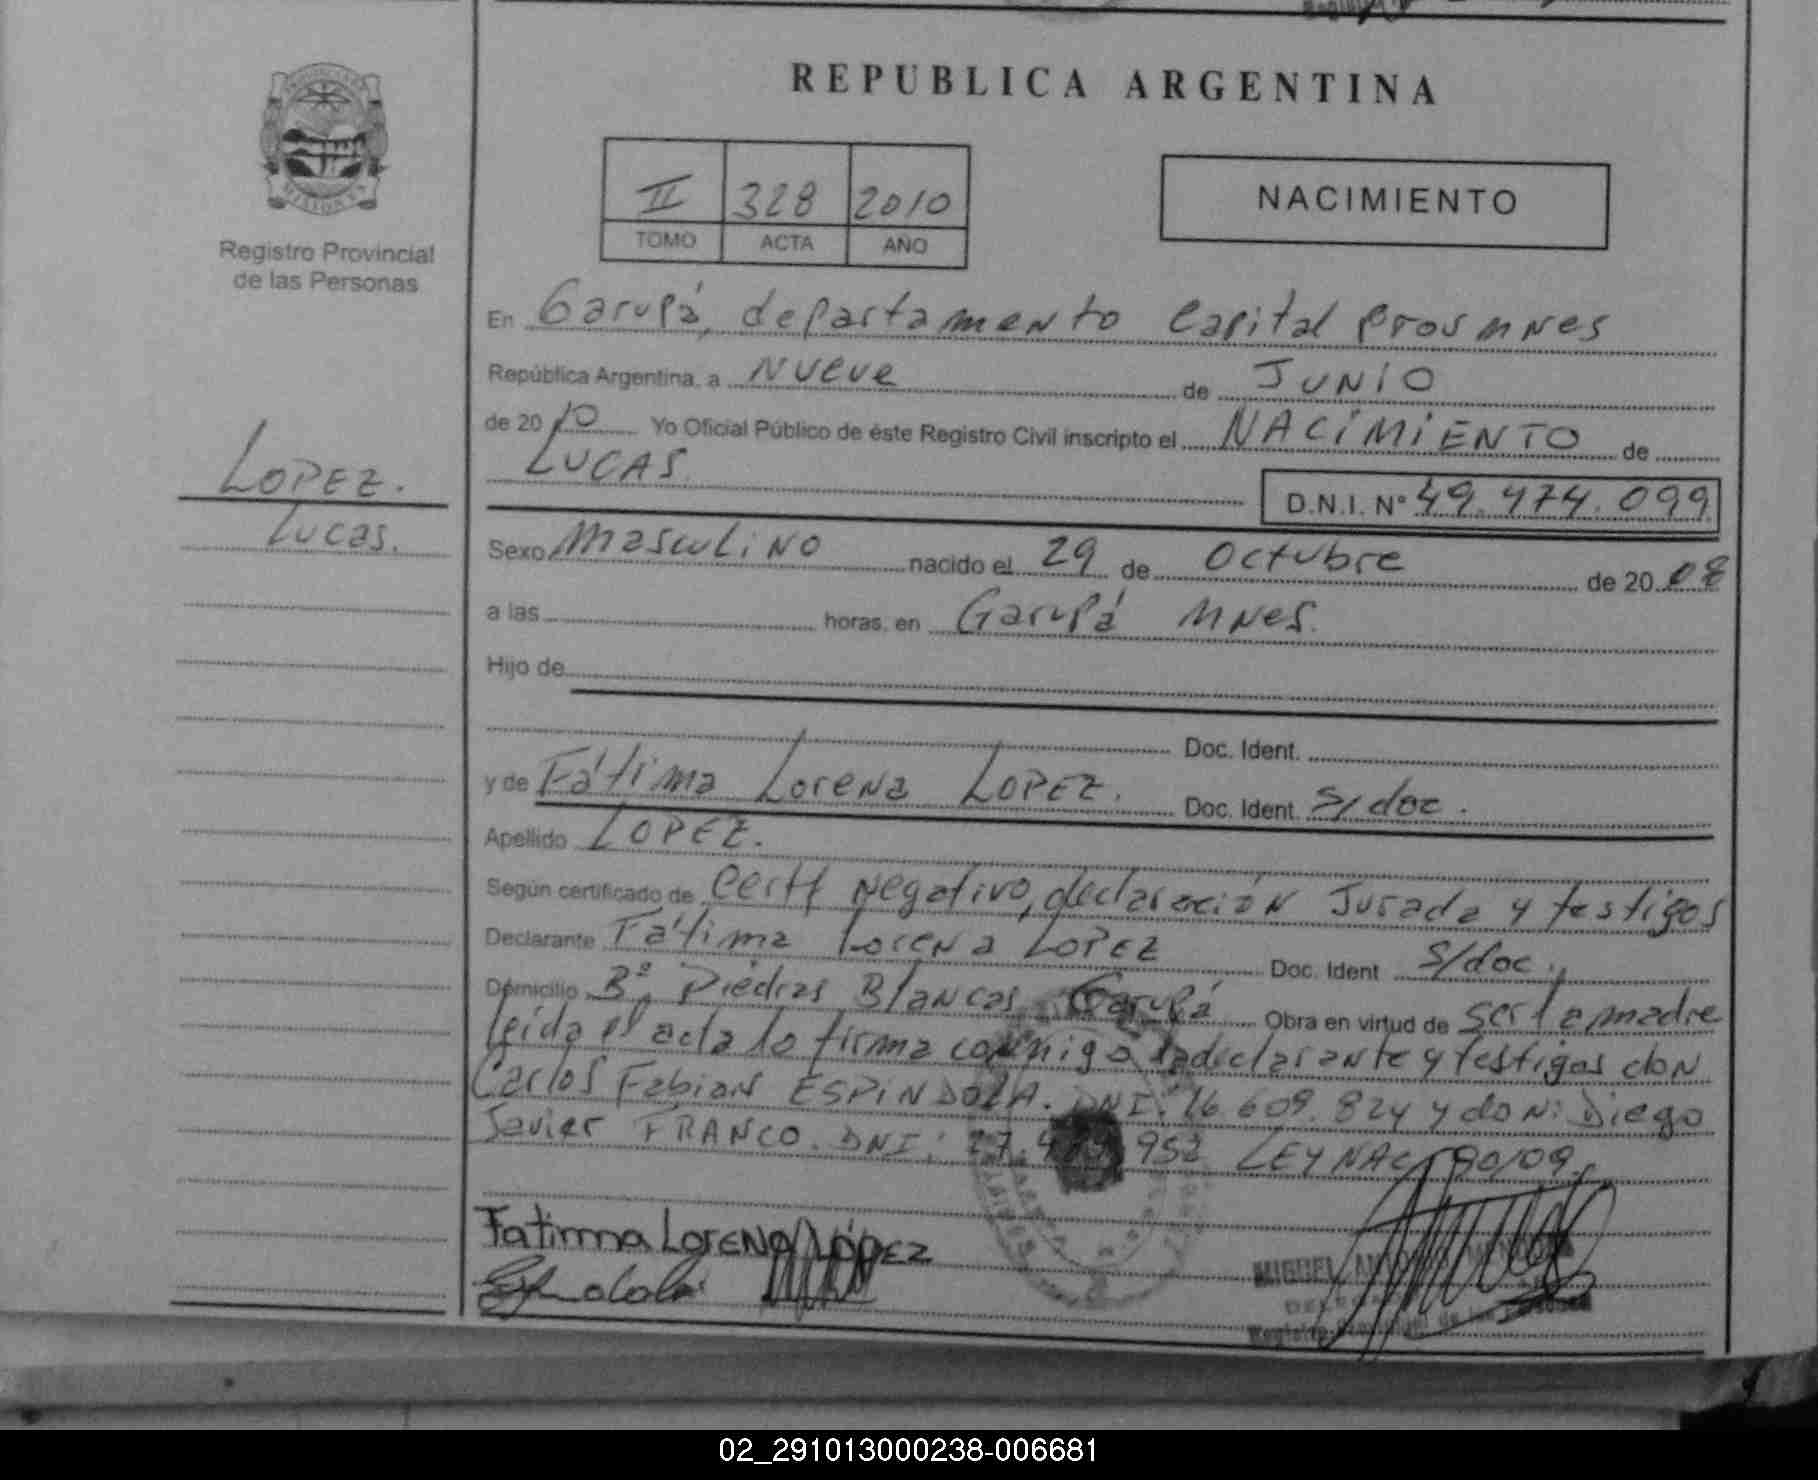 REPUBLICA ARGENTINA
MISIONES
Registro Provincial
de las Personas
II 328 2010
TOMO ACTA AÑO
NACIMIENTO
En Garupá, departamento Capital Prov Mnes
República Argentina, a Nueve de JUNIO
de 20 10 Yo Oficial Público de éste Registro Civil inscripto el NACIMIENTO de
LUCAS.
D.N.I. Nº 49.474.099
LOPEZ.
Lucas.
Sexo Masculino nacido el 29 de Octubre de 20 08
a las horas, en Garupá Mnes.
Hijo de
Doc. Ident.
y de Fátima Lorena LOPEZ. Doc. Ident. S/doc.
Apellido LOPEZ.
Según certificado de Certf Negativo, declaración Jurada y testigos
Declarante Fátima Lorena LOPEZ Doc. Ident S/doc.
Domicilio Bº Piedras Blancas Garupá Obra en virtud de ser la madre
leida el acta lo firma conmigo la declarante y testigos don
Carlos Fabian ESPINDOLA. DNI: 16.609.824 y don: Diego
Javier FRANCO. DNI: 27. 952 LEY NAC 90/09.
Fatima Lorena López
MIGUEL ANTONIO
Registro Provincial de las Personas
02_291013000238-006681